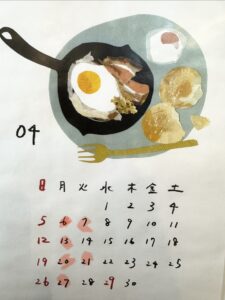 04
日 月 火 水 木 金 土
1 2 3 4
5 6 7 8 9 10 11
12 13 14 15 16 17 18
19 20 21 22 23 24 25
26 27 28 29 30